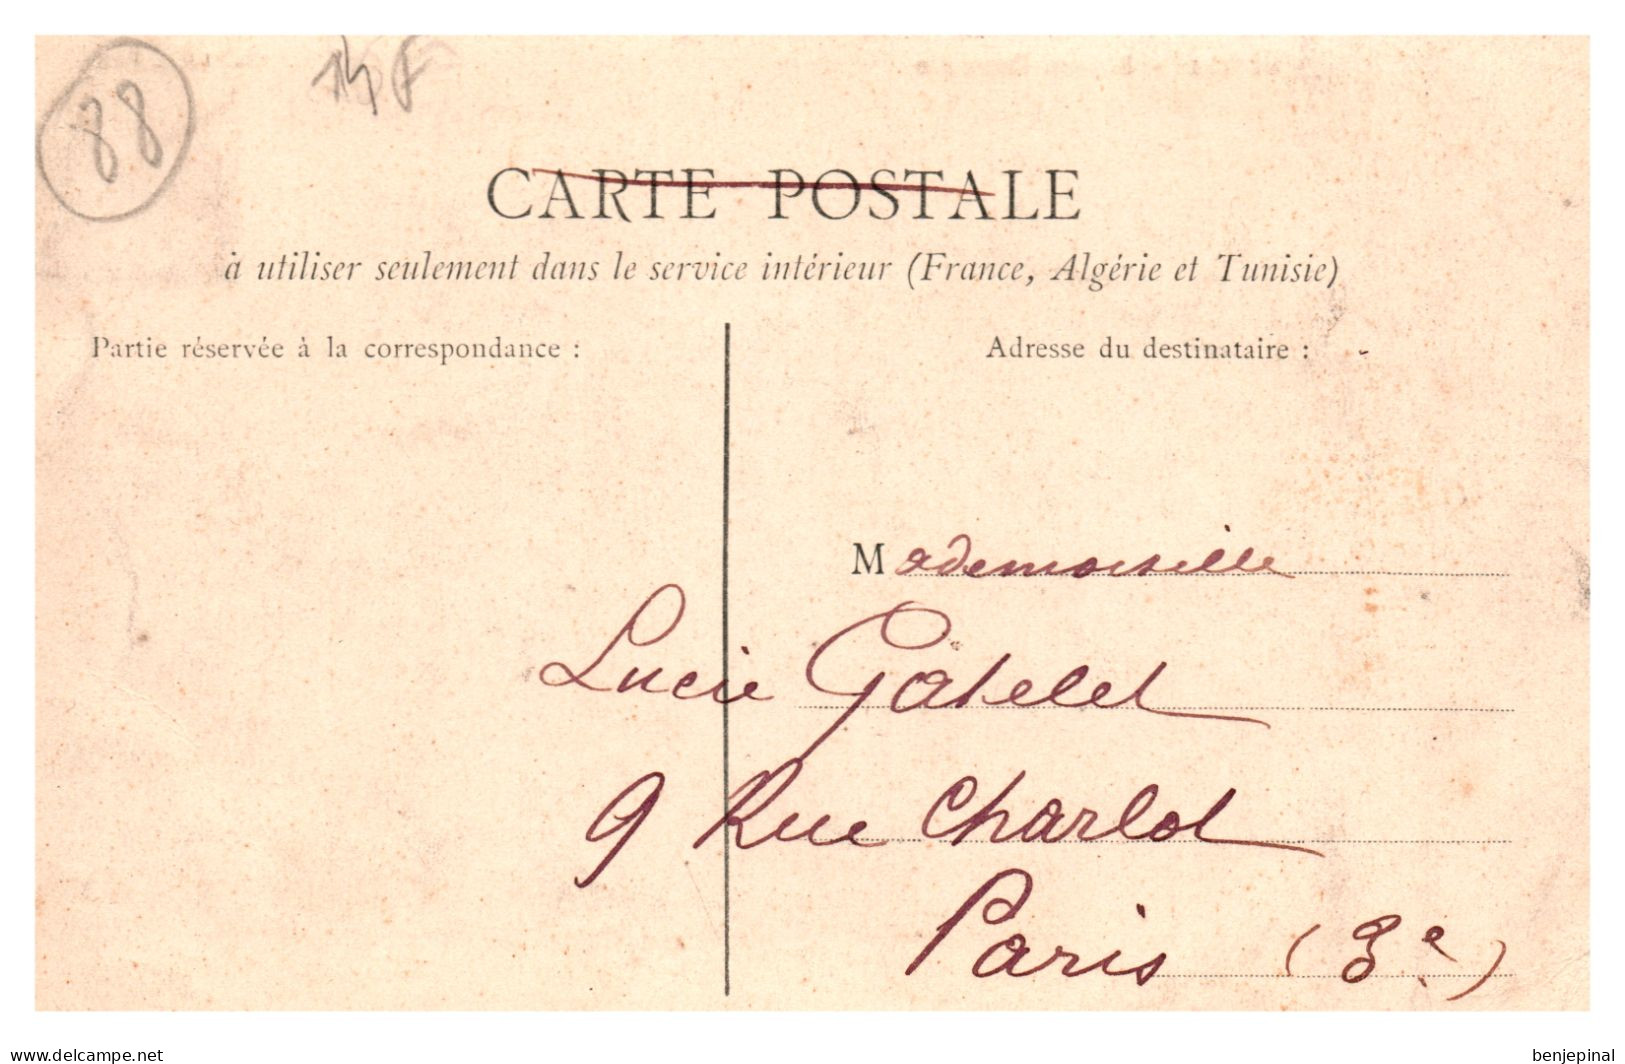 88
CARTE POSTALE
à utiliser seulement dans le service intérieur (France, Algérie et Tunisie)
Partie réservée à la correspondance :
Adresse du destinataire :
Mademoiselle
Lucie Gatelet
9 Rue Charlot
Paris (3e)
www.delcampe.net
benjepinal